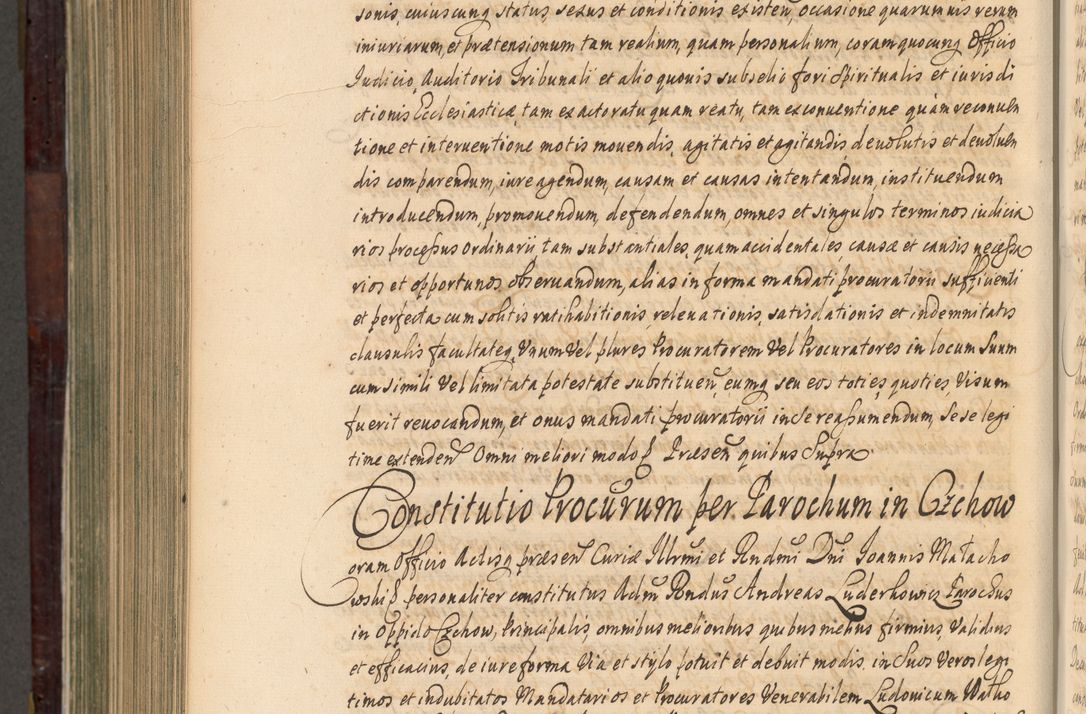 sonis, cuiuscunq status, sexus et conditionis existen, occasione quarumuis rerum
iniuriarum, et prætensionum tam realium, quam personalium, coram quocunq Officio
Iudicio, Auditorio Tribunali et alio quouis subselio fori Spiritualis et iurisdi
ctionis Ecclesiasticæ, tam ex actoratu quam reatu, tam ex conuentione quàm reconuen
tione et interuentione motis mouendis, agitatis et agitandis deuolutis et deuoluen
dis comparendum, iure agendum, causam et causas intentandum, instituendum
introducendum, promouendum, defendendum, omnes et singulos terminos iudicia
rios processus ordinarij, tam substantiales, quam accidentales, causæ et causis necessa
rios et opportunos obseruandum, alias in forma mandati procuratorii sufficienti
et perfecta cum solitis ratihabitionis, releuationis, satisdationis et indemnitatis
clausulis facultateq, Vnum Vel plures Procuratorem Vel Procuratores in locum Suum
cum simili Vel limitata potestate substituen, eumq seu eos toties, quoties, Visum
fuerit reuocandum, et onus mandati procuratorii in Se reassumendum, Se se legi
time extenden Omni meliori modo p Præsen quibus Supra
Constitutio Procurum per Parochum in Czchow
oram Officio Actisq præsen Curiæ Illrmi et Rndmi Dni Joannis Małacho
wski p personaliter constitutus Adm Rndus Andreas Luderkowicz Parochus
in Oppido Czchow, Principalis, omnibus melioribus quibus melius firmius, Validius
et efficacius, de iure forma Via et stylo potuit et debuit modis, in Suos Veros legi
timos et indubitatos Mandatarios et Procuratores Venerabilem Ludouicum Watho